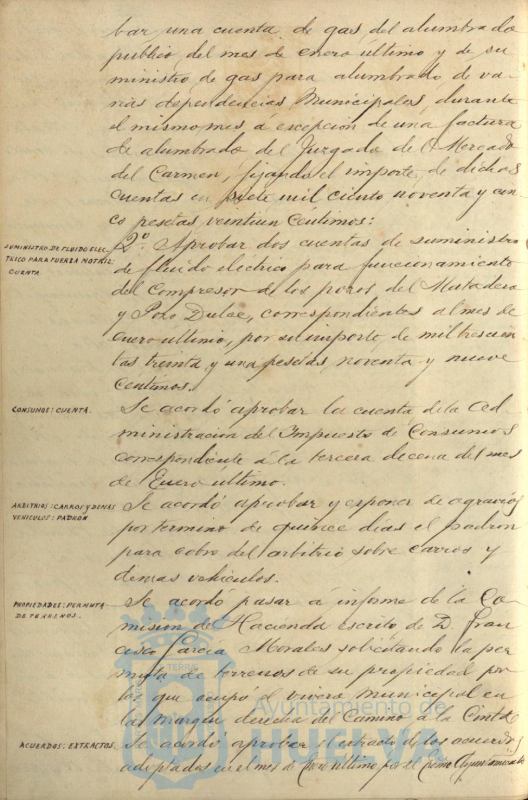 bar una cuenta de gas del alumbrado
publico del mes de enero ultimo y de su
ministro de gas para alumbrado de va
rias dependencias Municipales, durante
el mismo mes á excepcion de una factura
de alumbrado del Juzgado de el Mercado
del Carmen, fijando el importe de dichas
cuentas en siete mil ciento noventa y cin
co pesetas veintiun centimos:
SUMINISTRO DE FLUIDO ELEC-
TRICO PARA FUERZA MOTRIZ:
CUENTA
2º. Aprobar dos cuentas de suministro
de fluido electrico para funcionamiento
del Compresor de los pozos del Matadero
y Pozo Dulce, correspondientes al mes de
enero ultimo, por su importe de mil trescien
tas treinta y una pesetas noventa y nueve
centimos.
CONSUMOS: CUENTA.
Se acordó aprobar la cuenta de la Ad
ministracion del Impuesto de Consumos
correspondiente á la tercera decena del mes
de Enero ultimo.
ARBITRIOS: CARROS Y DEMAS
VEHICULOS: PADRÓN
Se acordó aprobar y esponer de agravios
por termino de quince dias el padron
para cobro del arbitrio sobre carros y
demas vehiculos.
PROPIEDADES: PERMUTA
DE TERRENOS.
Se acordó pasar á informe de la Co-
mision de Hacienda escrito de D. Fran
cisco Garcia Morales solicitando la per
muta de terrenos de su propiedad por
los que ocupa el vivero municipal en
la margen derecha del Camino á la Cinta
ACUERDOS: EXTRACTOS.
Se acordó aprobar el extracto de los acuerdos
adoptados en el mes de Enero ultimo por el Excmo Ayuntamiento
Ayuntamiento de
HUELVA